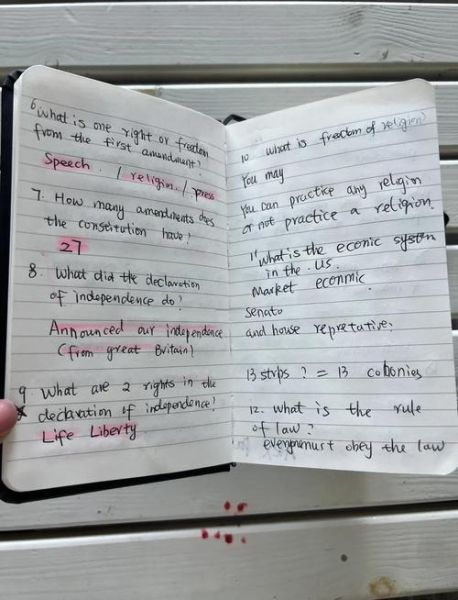 6 what is one right or freedom
from the first amendment?
Speech. / religin. / press
7. How many amendments does
the constitution have?
27
8. What did the declaration
of independence do?
Announced our independence
(from great Britain)
9. What are 2 rights in the
declaration of independence?
Life Liberty
10 what is freedom of religion?
You may
You can practice any religin
or not practice a religion.
11 What is the econic system
in the. US.
Market econmic.
Senato
and house repretative.
13 strps ? = 13 colonies
12. what is the rule
of law?
must obey the law